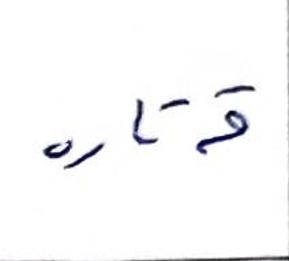 قر تاره